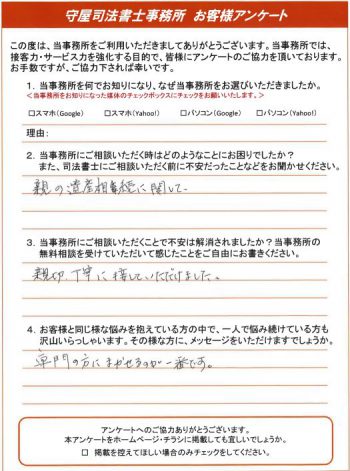 守屋司法書士事務所 お客様アンケート
この度は、当事務所をご利用いただきましてありがとうございます。当事務所では、
接客力・サービス力を強化する目的で、皆様にアンケートのご協力を頂いております。
お手数ですが、ご協力下されば幸いです。
1. 当事務所を何でお知りになり、なぜ当事務所をお選びいただきましたか。
<当事務所をお知りになった媒体のチェックボックスにチェックをお願いします。>
□スマホ(Google) □スマホ(Yahoo!) □パソコン(Google) □パソコン(Yahoo!)
理由:
2. 当事務所にご相談いただく時はどのようなことにお困りでしたか?
また、司法書士にご相談いただく前に不安だったことなどをお聞かせください。
親の遺産相続に関して
3. 当事務所にご相談いただくことで不安は解消されましたか?当事務所の
無料相談を受けていただいて感じたことをご自由にお書きください。
親切、丁寧に接していただけました。
4. お客様と同じ様な悩みを抱えている方の中で、一人で悩み続けている方も
沢山いらっしゃいます。その様な方に、メッセージをいただけますでしょうか。
専門の方にまかせるのが一番です。
アンケートへのご協力ありがとうございます。
本アンケートをホームページ・チラシに掲載しても宜しいでしょうか。
□ 掲載を控えてほしい場合のみチェックをしてください。